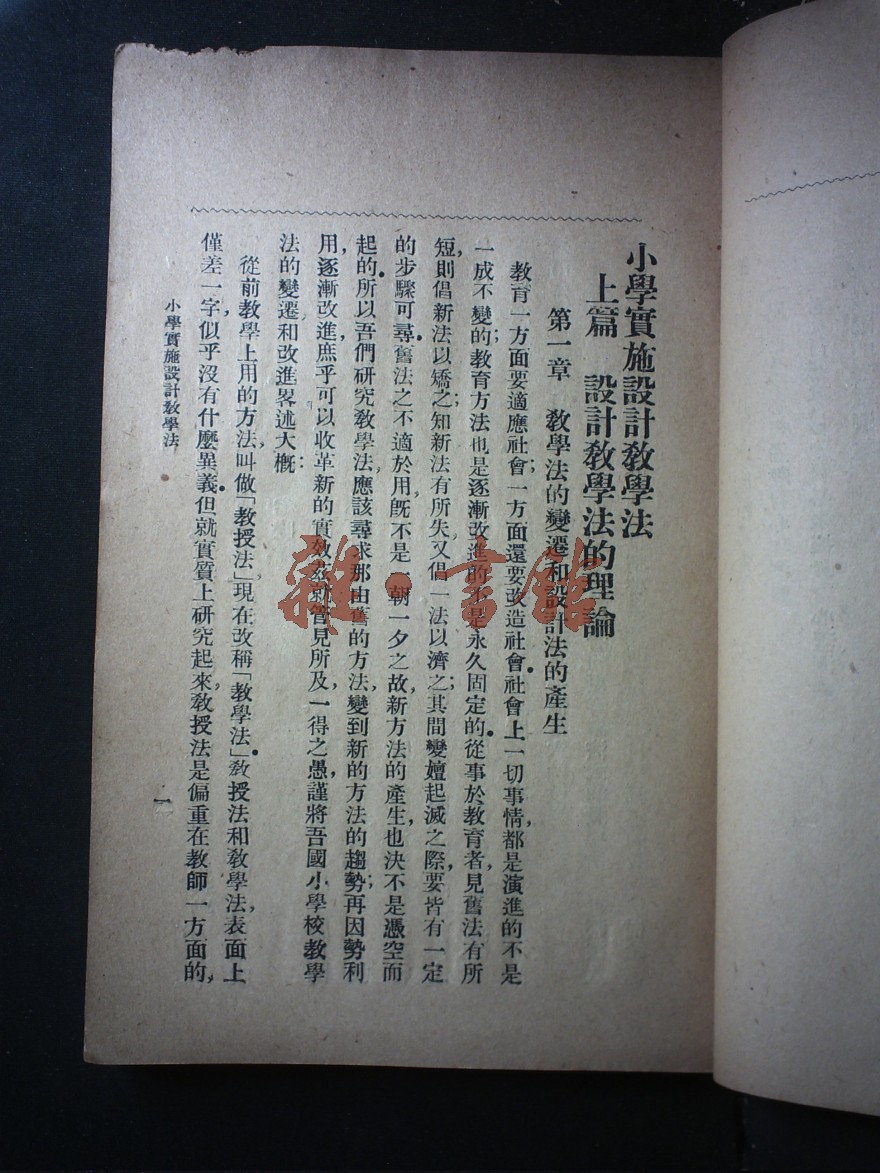 小學實施設計教學法
上篇　設計教學法的理論
第一章　教學法的變遷和設計法的產生
教育一方面要適應社會；一方面還要改造社會。社會上一切事情，都是演進的不是
一成不變的；教育方法也是逐漸改進的，不是永久固定的。從事於教育者，見舊法有所
短，則倡新法以矯之；知新法有所失，又倡一法以濟之；其間變嬗起滅之際，要皆有一定
的步驟可尋。舊法之不適於用，旣不是一朝一夕之故，新方法的產生，也決不是憑空而
起的。所以吾們研究教學法，應該尋求那由舊的方法，變到新的方法的趨勢；再因勢利
用，逐漸改進，庶乎可以收革新的實效。茲就管見所及，一得之愚，謹將吾國小學校教學
法的變遷和改進畧述大概：
從前教學上用的方法，叫做「教授法」現在改稱「教學法」。教授法和教學法，表面上
僅差一字，似乎沒有什麼異義。但就實質上研究起來，教授法是偏重在教師一方面的，
小學實施設計教學法
一
雜·書館